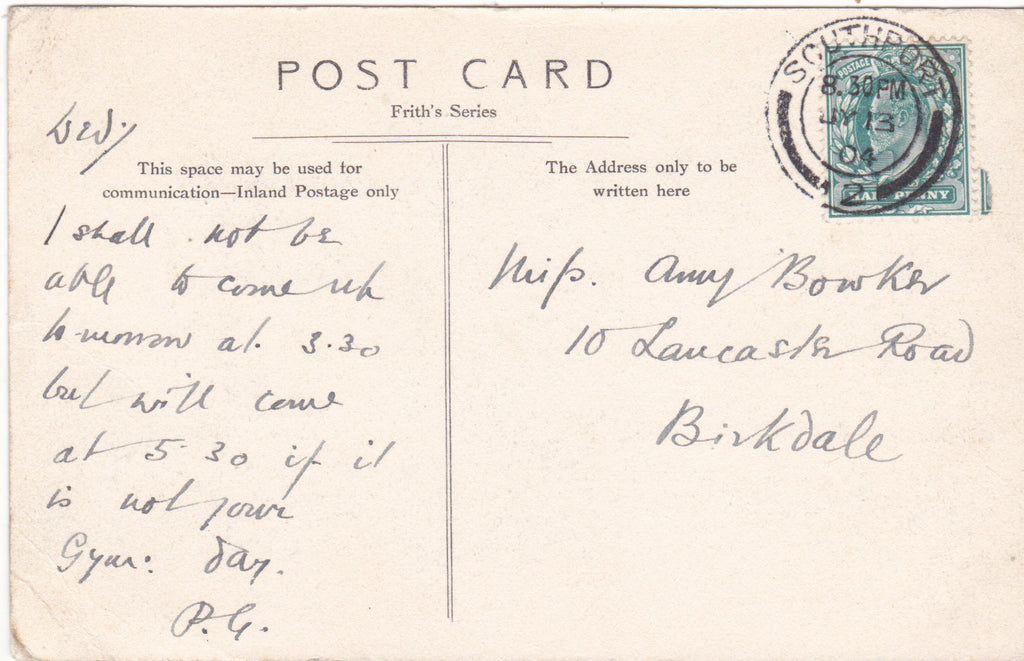 POST CARD
Frith's Series
Wedy
This space may be used for
communication—Inland Postage only
I shall not be
able to come up
to-morrow at 3.30
but will come
at 5-30 if it
is not your
Gym: day.
P.G.
The Address only to be
written here
SOUTHPORT
8.30PM
JY 13
04
2
POSTAGE
HALF PENNY
Miss. Amy Bowker
10 Lancaster Road
Birkdale